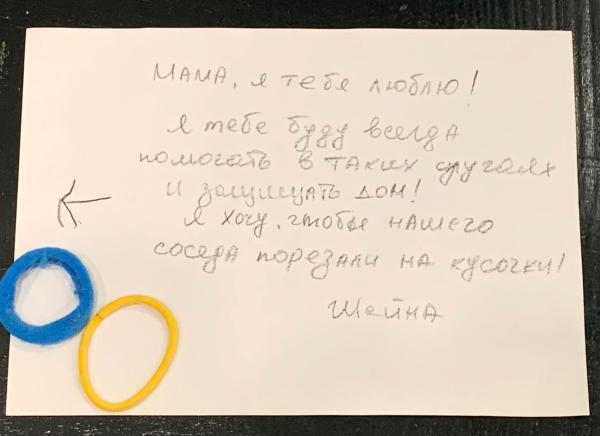 МАМА, я тебя люблю!
Я тебе буду всегда
помогать в таких случаях
и защищать дом!
Я хочу, чтобы нашего
соседа порезали на кусочки!
Шейна